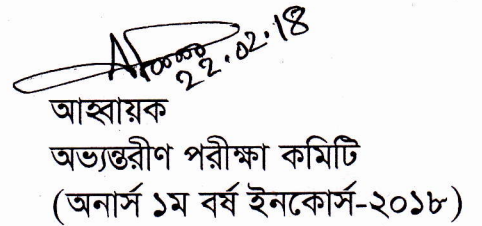 22.02.18
আহ্বায়ক
অভ্যন্তরীণ পরীক্ষা কমিটি
(অনার্স ১ম বর্ষ ইনকোর্স-২০১৮)